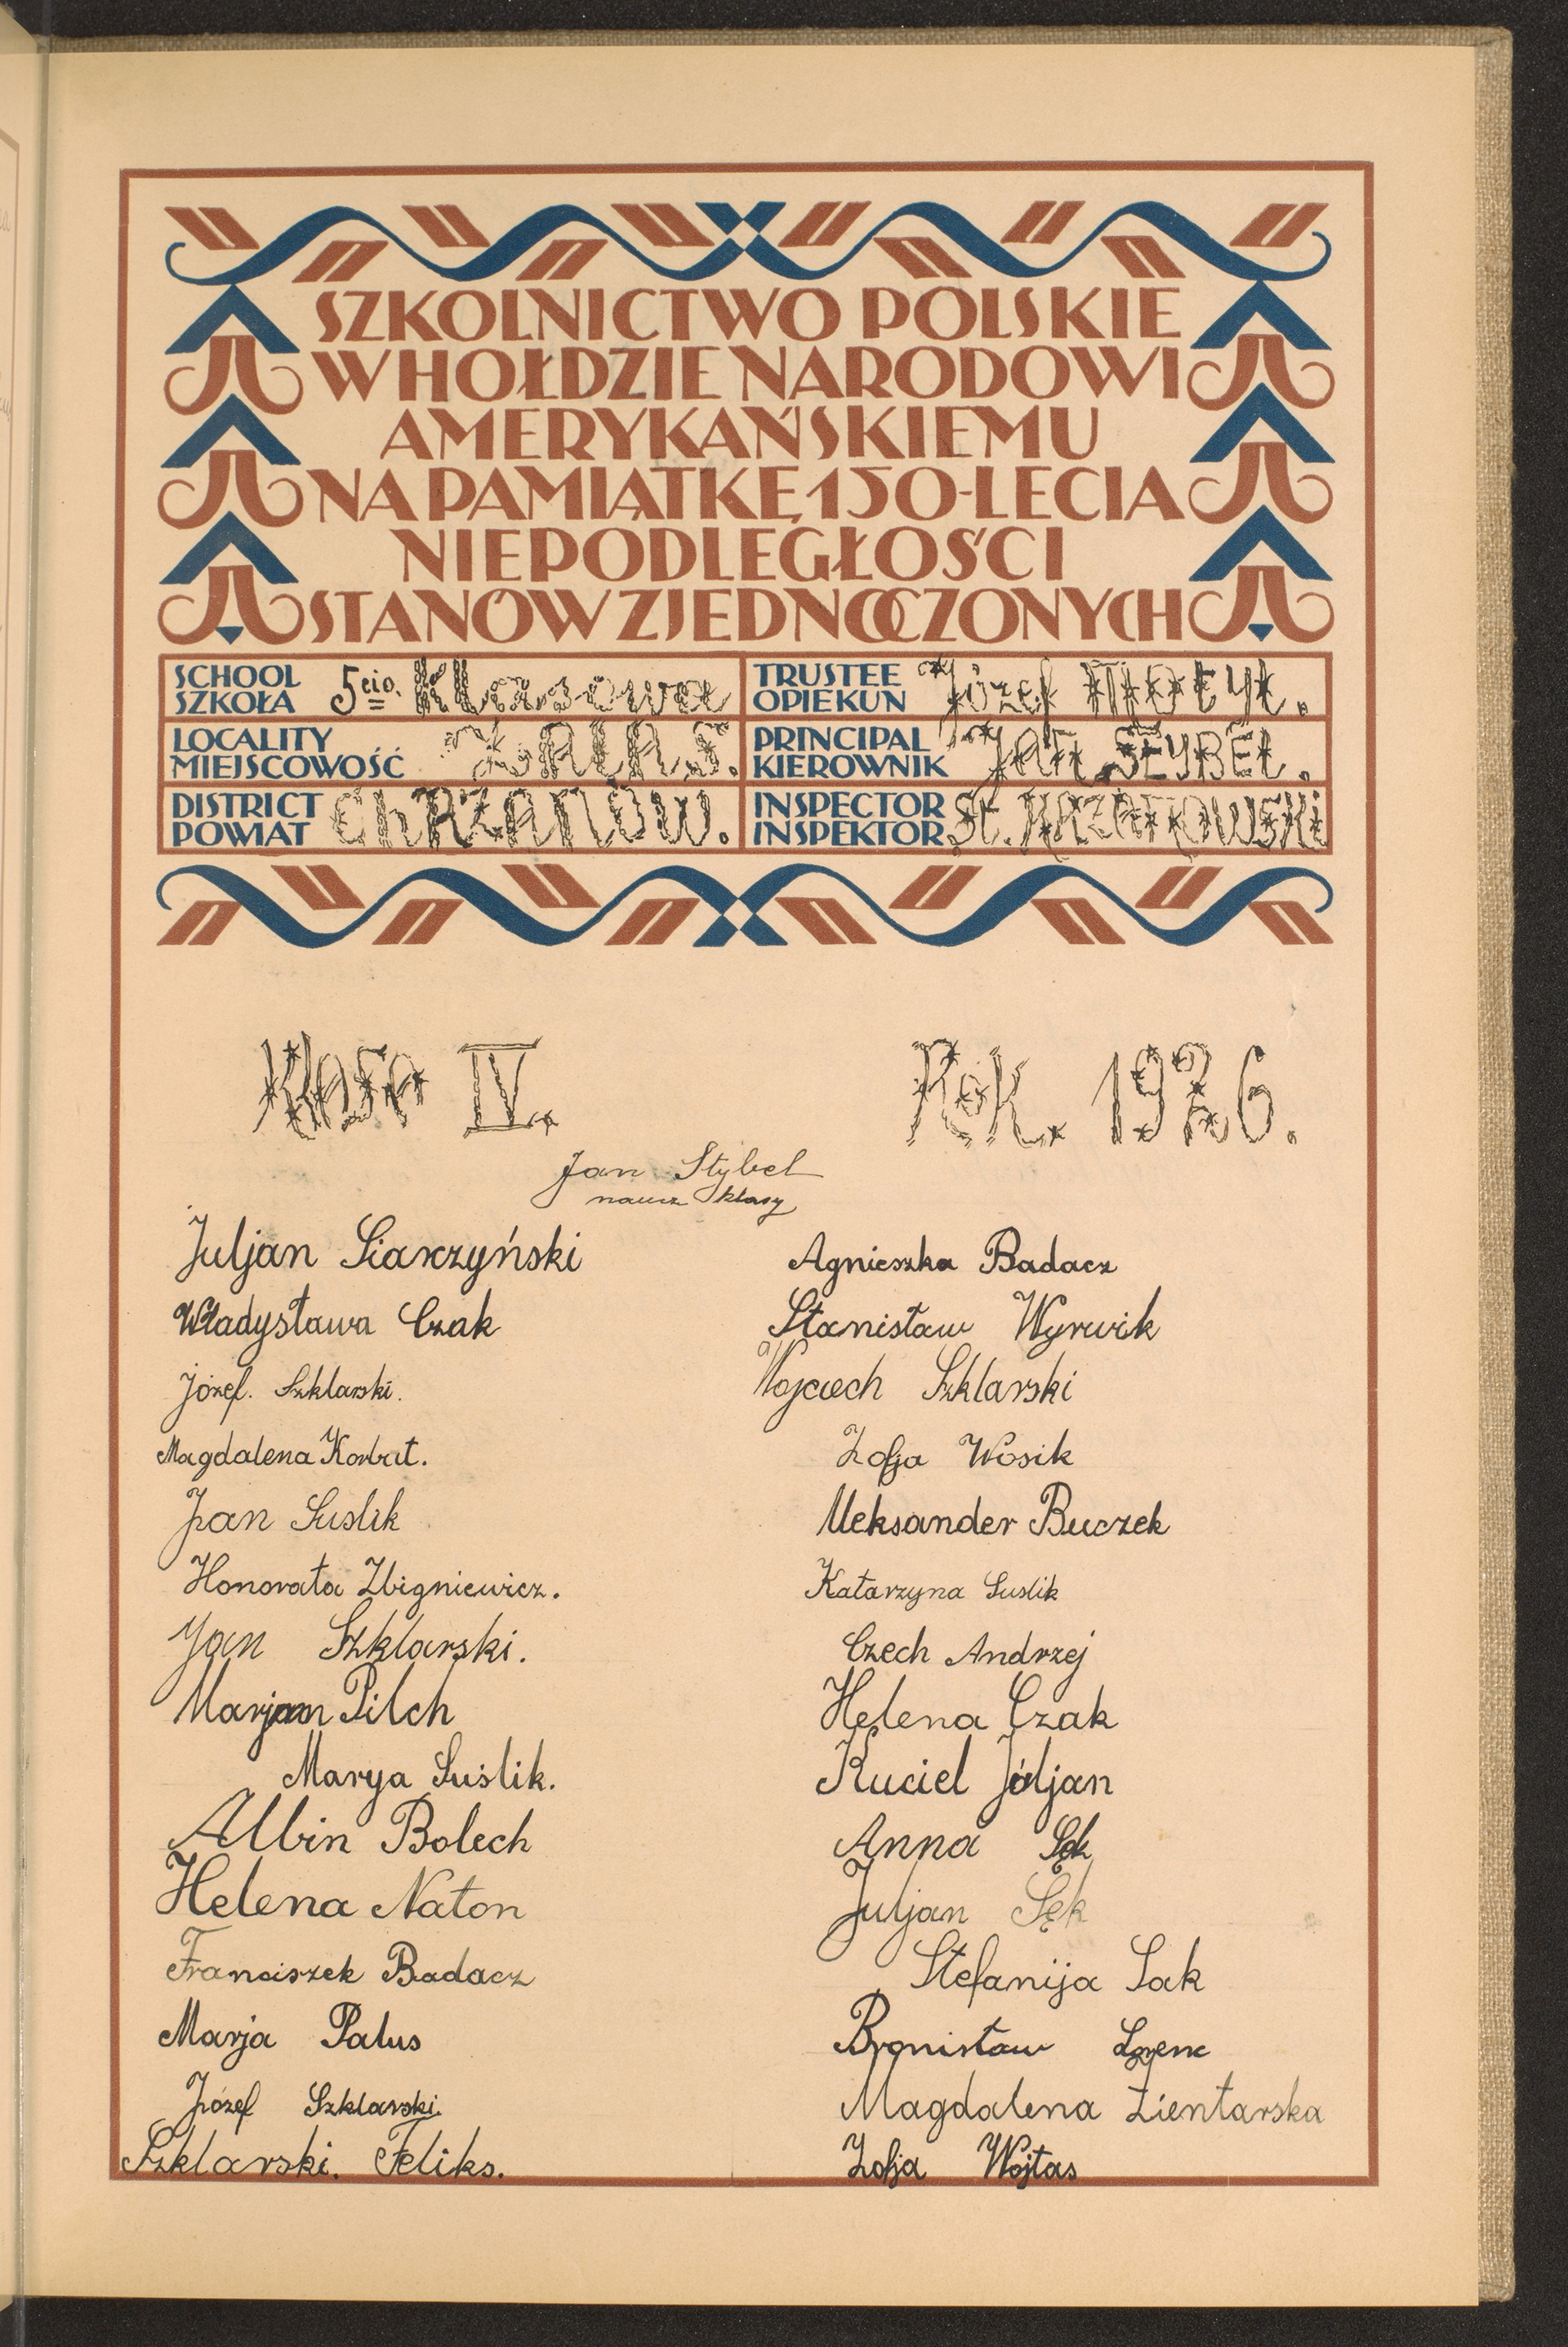 SZKOLNICTWO POLSKIE
W HOŁDZIE NARODOWI
AMERYKAŃSKIEMU
NA PAMIĄTKĘ 150-LECIA
NIEPODLEGŁOŚCI
STANÓW ZJEDNOCZONYCH
SCHOOL
SZKOŁA 5cio. Klasowa
TRUSTEE
OPIEKUN Józef Motyk.
LOCALITY
MIEJSCOWOŚĆ
PRINCIPAL
KIEROWNIK Jan
DISTRICT
POWIAT Chrzanów.
INSPECTOR
INSPEKTOR St.
Klasa IV.
Rok. 1926.
Jan Stybel
naucz klasy
Juljan Siarczyński
Władysława Czak
Józef. Szklarski.
Magdalena Korbut.
Jan Suslik
Honorata Zbigniewicz.
Jan Szklarski.
Marjan Pilch
Marya Suślik.
Albin Bolech
Helena Naton
Franciszek Badacz
Marja Palus
Józef Szklarski.
Szklarski. Feliks.
Agnieszka Badacz
Stanisław Wyrwik
Wojciech Szklarski
Zofja Wosik
Aleksander Buczek
Katarzyna Suslik
Czech Andrzej
Helena Czak
Kuciel Jóljan
Anna Sęk
Juljan Sęk
Stefanija Sak
Bronisław
Magdalena Zientarska
Zofja Wojtas